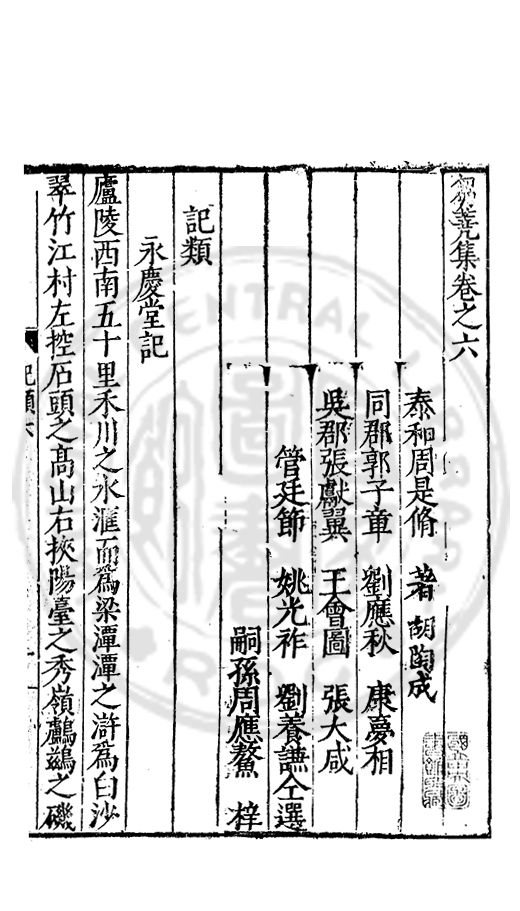 芻蕘集卷之六
泰和周是脩 著 胡陶成
同郡郭子章 劉應秋 康夢相
吳郡張獻翼 王會圖 張大咸
管廷節 姚光祚 劉養謙仝選
嗣孫周應鰲 梓
記類
永慶堂記
廬陵西南五十里禾川之水滙而爲梁潭潭之滸爲白沙
翠竹江村左控石頭之髙山右挾陽臺之秀嶺鸕鷀之磯
記類六
CENTRAL